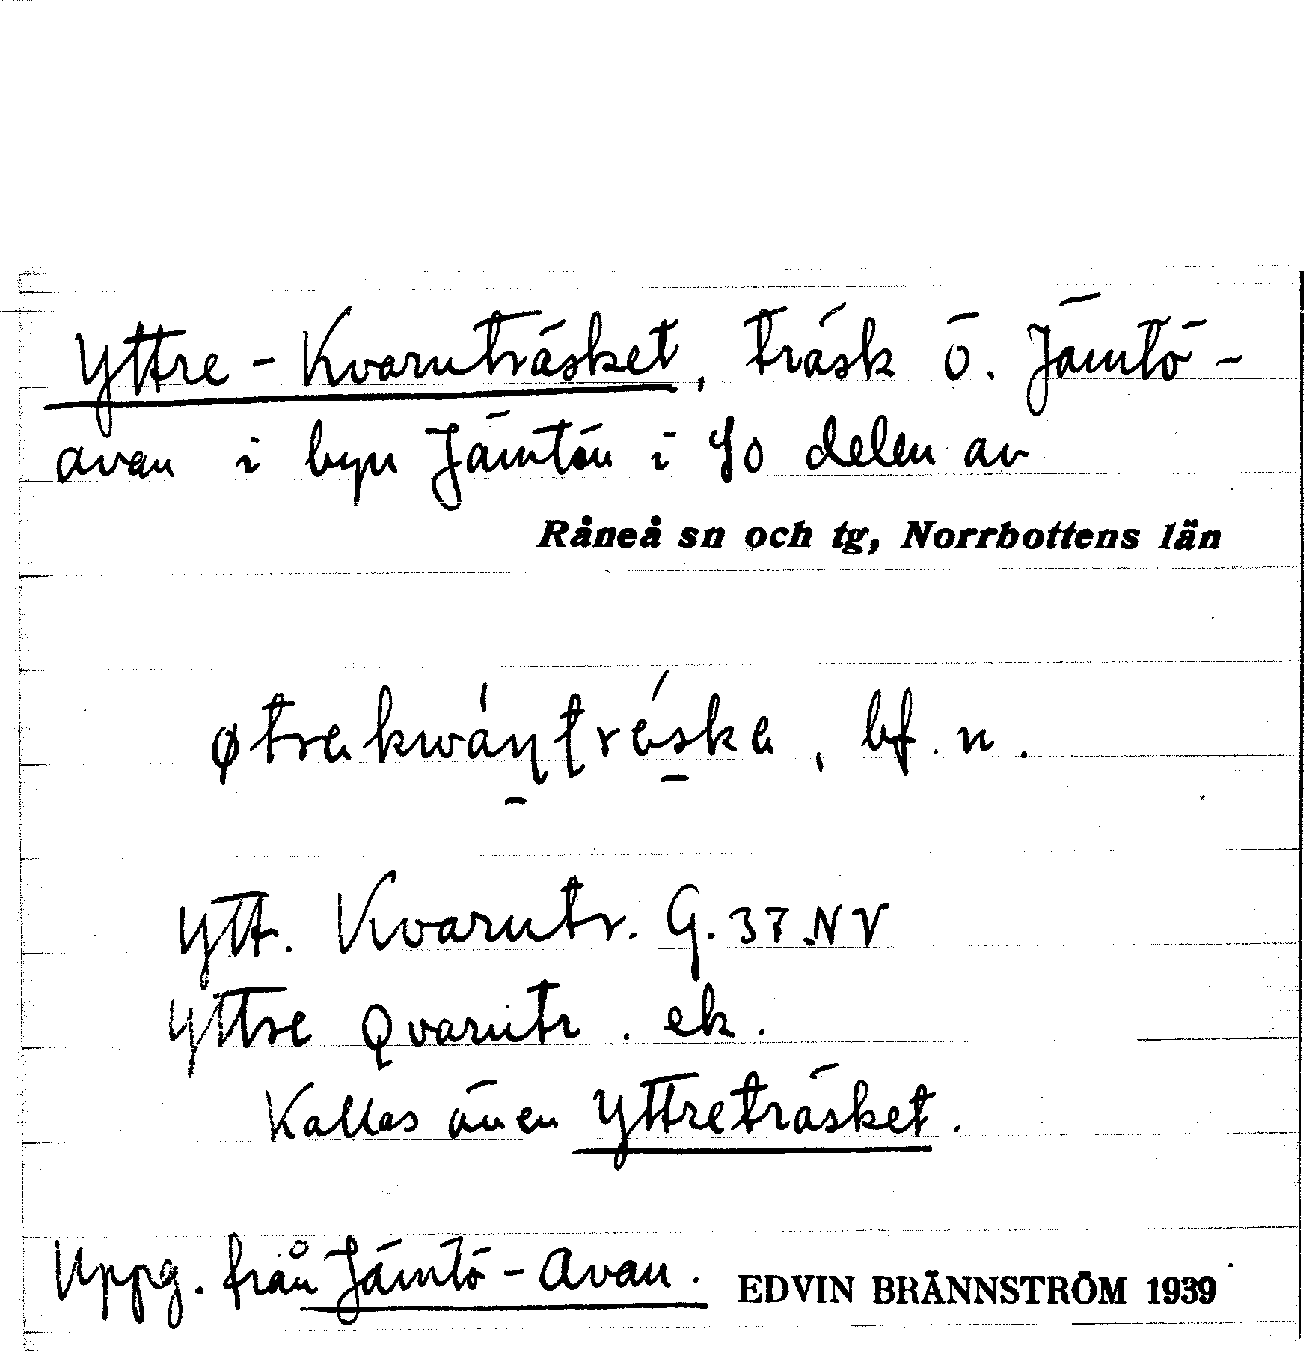 Yttre-Kvarnträsket, träsk ö. Jämtö-
avan i byn Jämtön i SO delen av
Råneå sn och tg, Norrbottens län
bf. n.
Ytt. Kvarntr. G. 37 NV
Yttre Qvarntr. ek.
Kallas även Yttreträsket.
Uppg. från Jämtö-Avan. EDVIN BRÄNNSTRÖM 1939